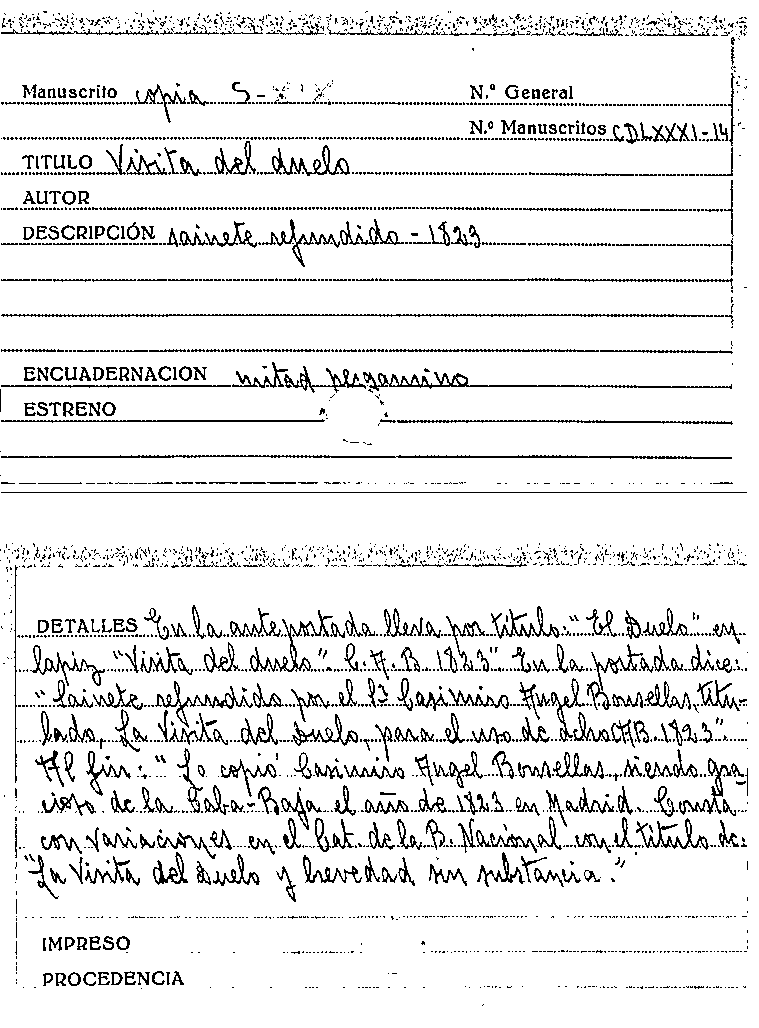 Manuscrito copia S-XIX N.º General
N.º Manuscritos CDLXXXI-14
TITULO Visita del duelo
AUTOR
DESCRIPCIÓN sainete refundido - 1823
ENCUADERNACION mitad pergamino
ESTRENO
DETALLES En la anteportada lleva por titulo: "El Duelo" en
lapiz "Visita del duelo". C. A. B 1823". En la portada dice:
"Sainete refundido por el Sº Casimiro Angel Bonsellas, titu-
lado, La Visita del Duelo, para el uso de dcho CAB. 1823".
Al fin: "Lo copió Casimiro Angel Bonsellas, siendo gra-
cioso de la Caba-Baja el año de 1823 en Madrid. Consta
con variaciones en el Cat. de la B. Nacional con el titulo de:
"La Visita del Duelo y brevedad sin substancia."
IMPRESO
PROCEDENCIA